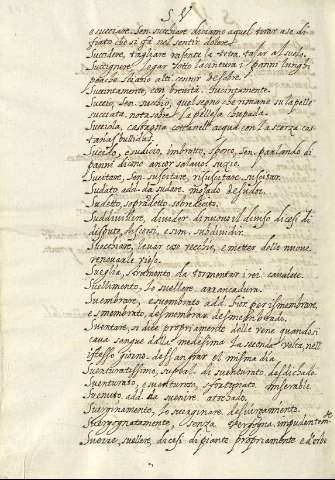 S V
o succiare. Sen. succhiare diciamo aquel tirar a se di
fiato che si fà nel sentir dolore.
Succidere, tagliare rasente la terra, talar al suelo.
Succignere, legar sotto la cintura i panni lunghi
peroche stiano alti ceñir debaxo.
Succintamente, con brevità. sucintamente.
Succio, Sen. succhio, quel segno che rimane su la pelle
succiata, nota sobre la pelleja chupada.
Succiola, castagna cotta nell'acqua con la scorza cas
taña pullida.
Sucido, sudicio, imbratto, sporco, Sen. parlando di
panni diciamo ancor salavo. suzio.
Sucitare, Sen. suscitare, risuscitare, suscitar.
Sudato, add. da sudare. mojado de sudor.
Sudetto, sopradetto. sobredicho.
Suddividere, divider di nuovo il diviso dicesi di
disputa, discorsi, e sim. subdividir.
Svecchiare, levar cose vecchie, e metter delle nuove
renovar lo viejo.
Sveglia, stromento da tormentar i rei. cavalete.
Svellimento, lo svellere. arrancadura.
Svembrare, e svembrato add. Bocc. per ismembrare,
e smembrato, desmembrar. desmembrado.
Sventare, si dice propriamente delle vene quando si
cava sangue dalla medesima la seconda volta, nell'
istesso giorno. desangrar el misma dia.
Sventuratissimo, superl. di sventurato desdichado.
Sventurato, e sventurato, sfortunato. miserable.
Svenuto, add. da svenire.
Sverginamento, lo sverginare. desvirgamiento.
Svergognatamente, senza vergogna. impudentem
Sverre, svellere, dicesi di piante propriamente e d'erbe